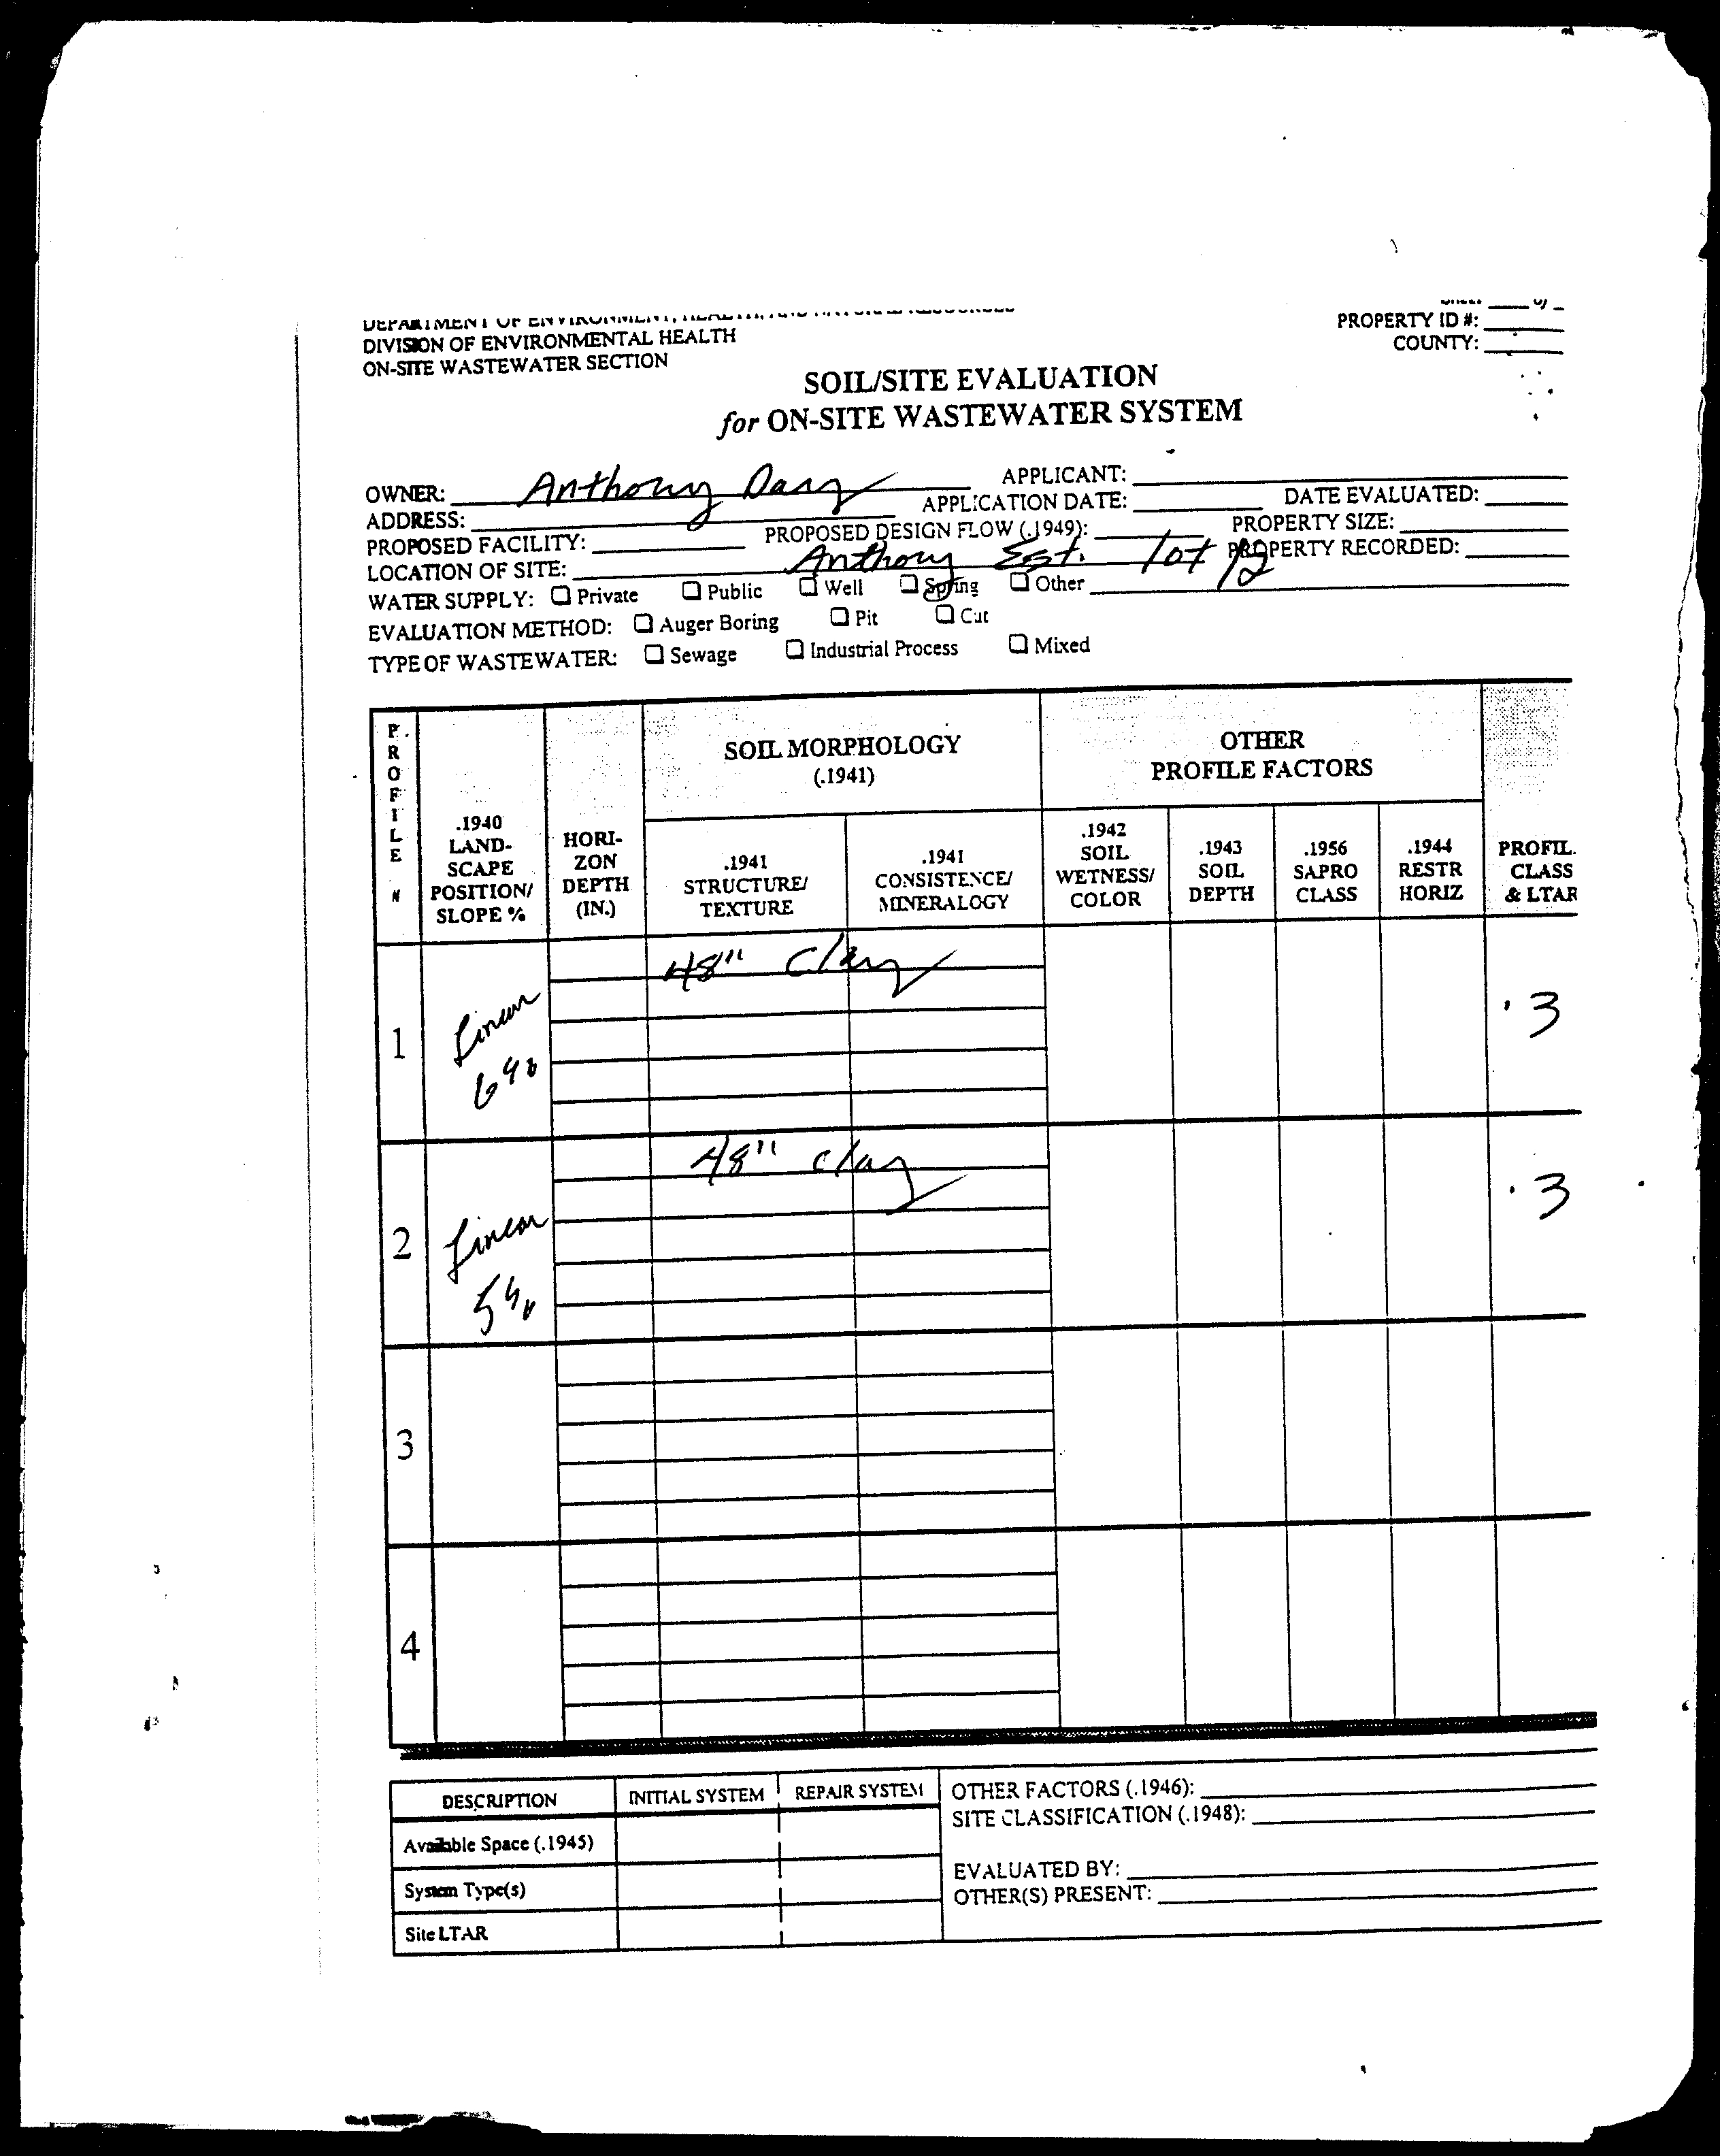 DEPARTMENT OF ENVIRONMENT, HEALTH, AND NATURAL RESOURCES
DIVISION OF ENVIRONMENTAL HEALTH
ON-SITE WASTEWATER SECTION
PROPERTY ID #:
COUNTY:
SOIL/SITE EVALUATION
for ON-SITE WASTEWATER SYSTEM
OWNER: Anthony APPLICANT:
ADDRESS: APPLICATION DATE: DATE EVALUATED:
PROPOSED FACILITY: PROPOSED DESIGN FLOW (.1949): PROPERTY SIZE:
LOCATION OF SITE: Anthony Est. lot 12 PROPERTY RECORDED:
WATER SUPPLY: ☐ Private ☐ Public ☐ Well ☐ Spring ☐ Other
EVALUATION METHOD: ☐ Auger Boring ☐ Pit ☐ Cut
TYPE OF WASTEWATER: ☐ Sewage ☐ Industrial Process ☐ Mixed
PROFILE #
.1940 LAND-SCAPE POSITION/ SLOPE %
HORI-ZON DEPTH (IN.)
SOIL MORPHOLOGY
(.1941)
.1941 STRUCTURE/ TEXTURE
.1941 CONSISTENCE/ MINERALOGY
OTHER
PROFILE FACTORS
.1942 SOIL WETNESS/ COLOR
.1943 SOIL DEPTH
.1956 SAPRO CLASS
.1944 RESTR HORIZ
PROFIL. CLASS & LTAR
1 Linear 6% 48" clay .3
2 Linear 5% 48" clay .3
3
4
DESCRIPTION INITIAL SYSTEM REPAIR SYSTEM
Available Space (.1945)
System Type(s)
Site LTAR
OTHER FACTORS (.1946):
SITE CLASSIFICATION (.1948):
EVALUATED BY:
OTHER(S) PRESENT: